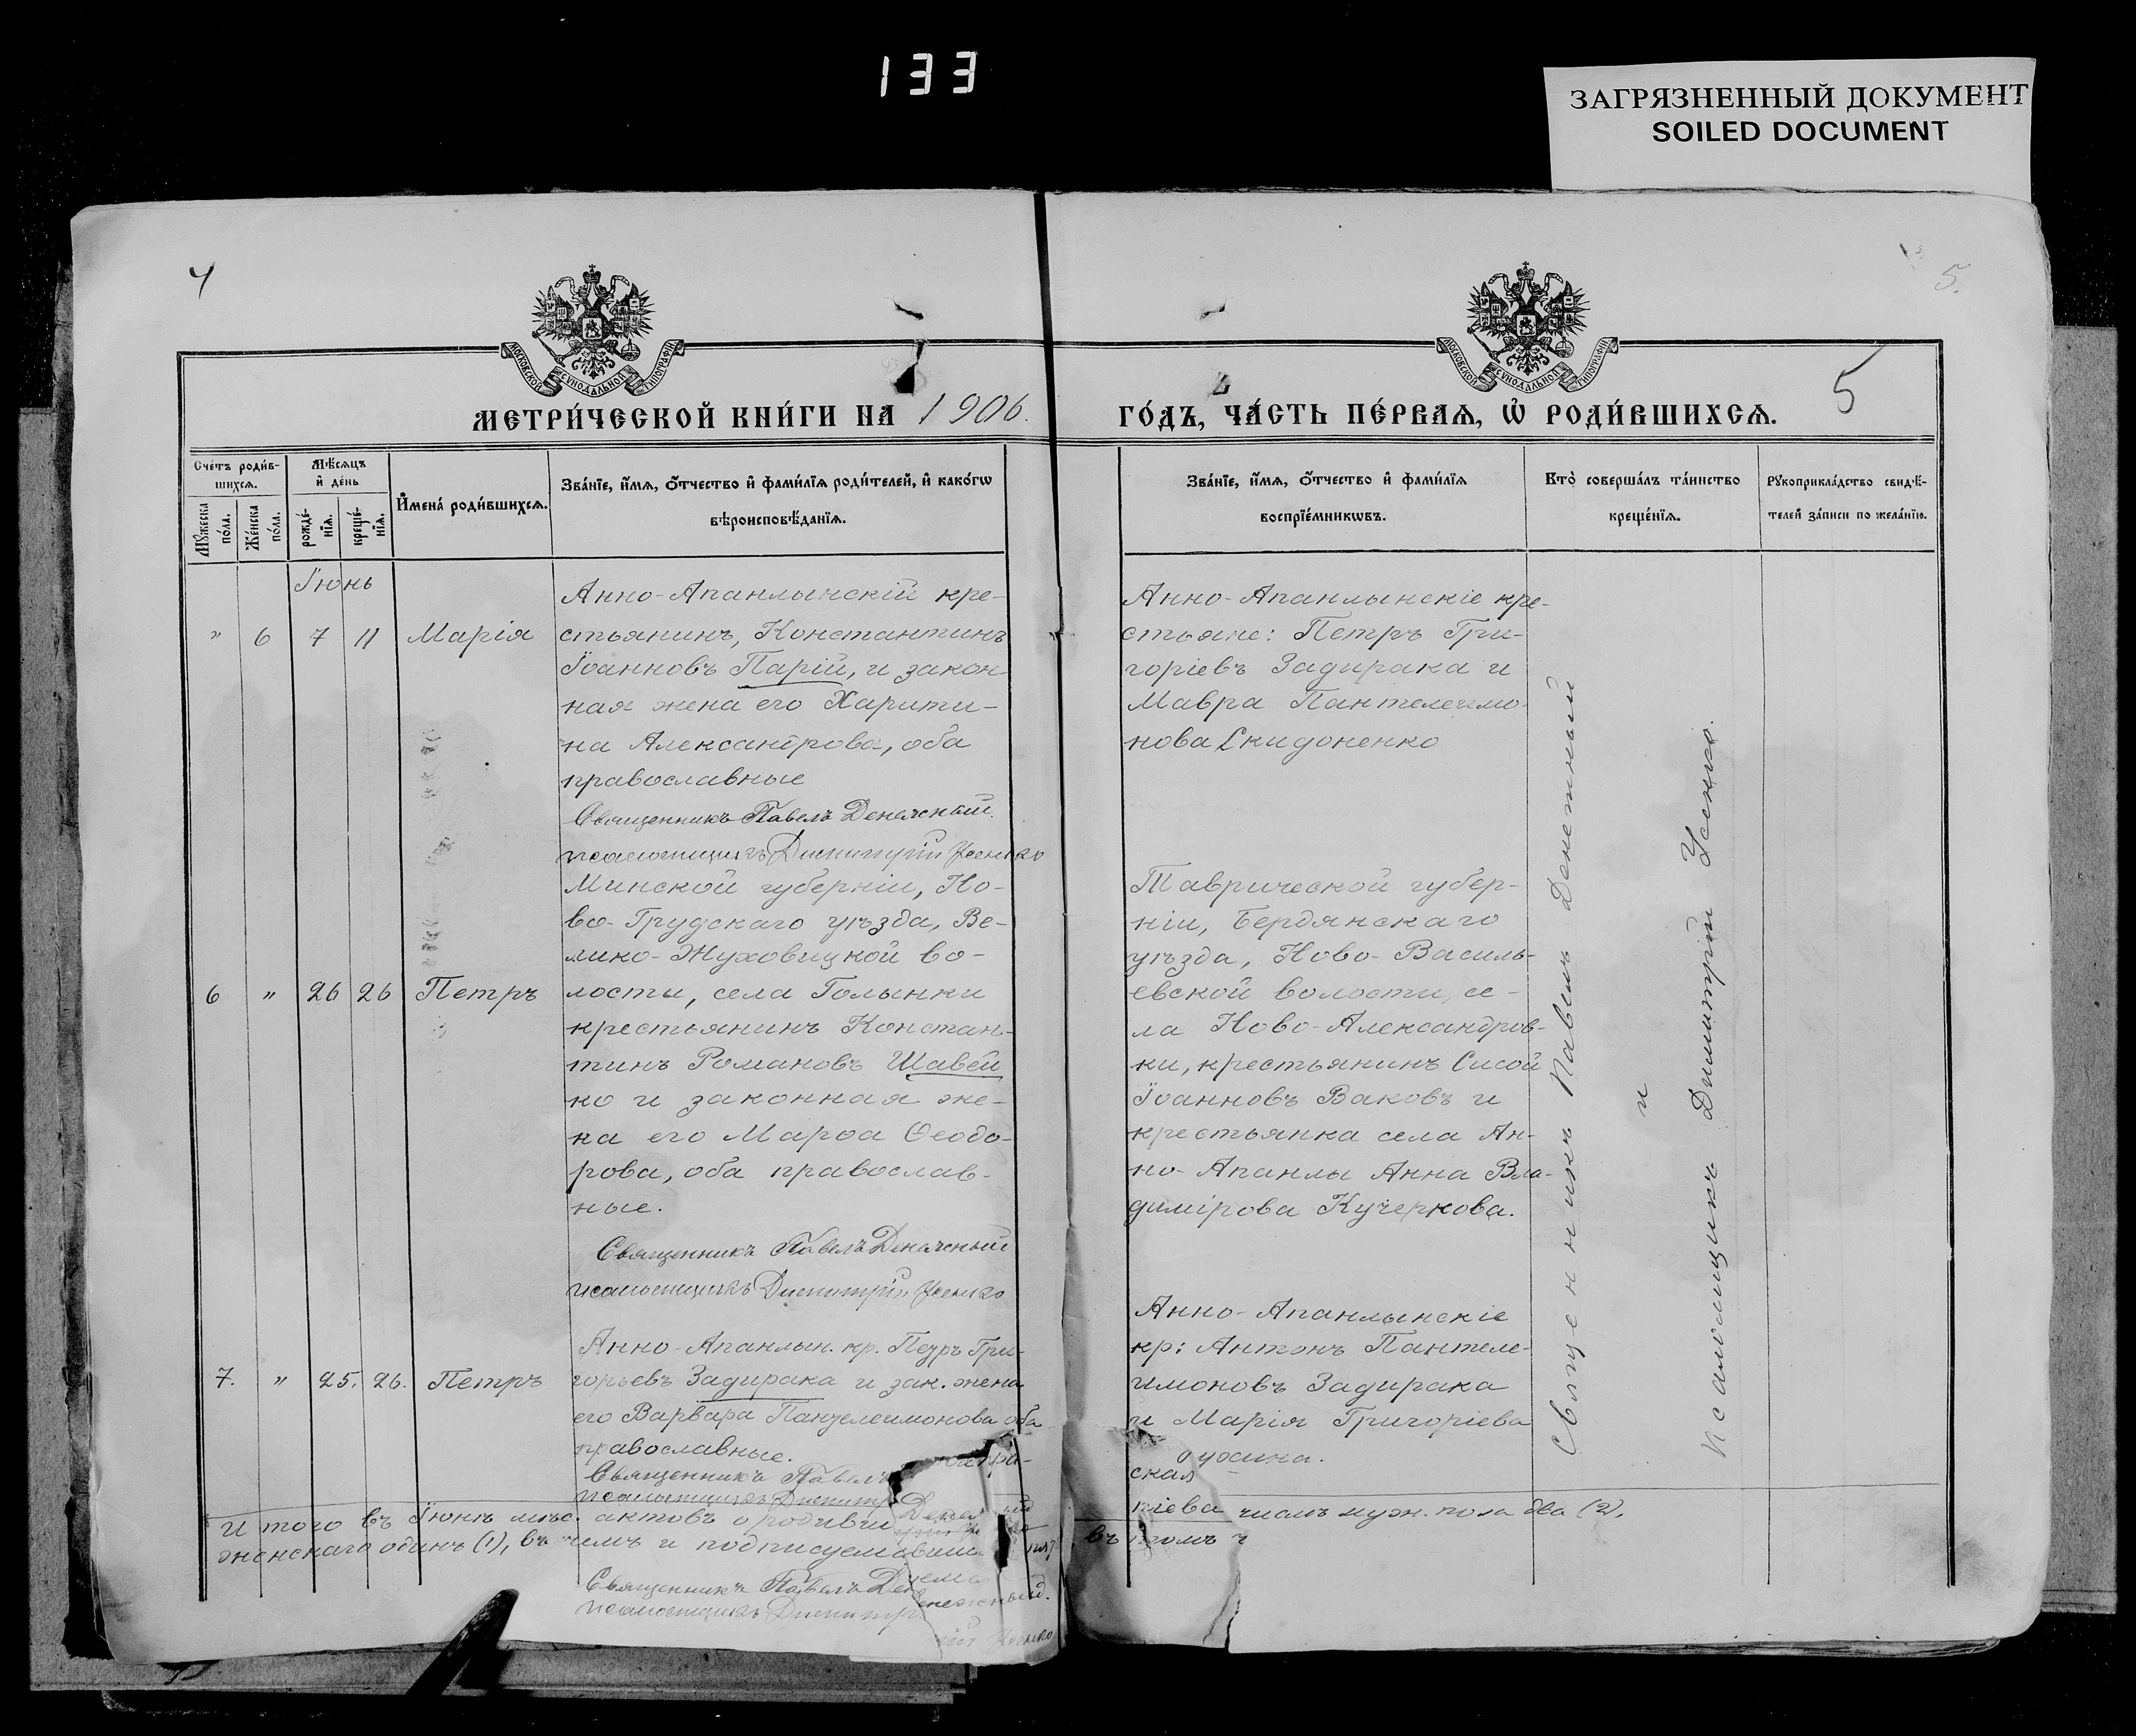 133
ЗАГРЯЗНЕННЫЙ ДОКУМЕНТ
SOILED DOCUMENT
4
5.
5
МОСКОВСКОЙ СѴНОДАЛЬНОЙ ТИПОГРАФІИ
МОСКОВСКОЙ СѴНОДАЛЬНОЙ ТИПОГРАФІИ
МЕТРИ́ЧЕСКОЙ КНИ́ГИ НА 1906.
ГО́ДЪ, ЧА́СТЬ ПЕ́РВАѦ, Ѡ҆ РОДИ́ВШИХСѦ.
Сче́тъ роди́в-
шихсѧ.
Мꙋ́жеска по́ла.
Же́нска по́ла.
Мѣ́сѧцъ
и҆ де́нь
рожде́-
нїѧ.
креще́-
нїѧ.
И҆мена̀ роди́вшихсѧ.
Зва́нїе, и҆́мѧ, ѻ҆́тчество и҆ фами́лїѧ роди́телей, и҆ како́гѡ
вѣроисповѣ́данїѧ.
Зва́нїе, и҆́мѧ, ѻ҆́тчество и҆ фами́лїѧ
воспрїе́мникѡвъ.
Кто̀ соверша́лъ та́инство
креще́нїѧ.
Рꙋкоприкла́дство свидѣ́-
телей за́писи по жела́нїю.
Іюнь
" 6 7 11 Марія
Анно-Апанлынскій кре-
стьянинъ, Константинъ
Іоанновъ Парій, и закон-
ная жена его Харити-
на Александрова, оба
православные
Священникъ Павелъ Денежный.
псаломщикъ Димитрій Усенко
Анно-Апанлынскіе кре-
стьяне: Петръ Гри-
горіевъ Задирака и
Мавра Пантелеимо-
нова Скидоненко
6 " 26 26 Петръ
Минской губерніи, Но-
во-Грудскаго уѣзда, Ве-
лико-Жуховицкой во-
лости, села Голынки
крестьянинъ Констан-
тинъ Романовъ Шавей
ко и законная же-
на его Марѳа Ѳеодо-
рова, оба православ-
ные.
Священникъ Павелъ Денежный
псаломщикъ Димитрій Усенко
Таврической губер-
ніи, Бердянскаго
уѣзда, Ново-Василь-
евской волости, се-
ла Ново-Александров-
ки, крестьянинъ Сисой
Іоанновъ Ваковъ и
крестьянка села Ан-
но-Апанлы Анна Вла-
димірова Кучеркова.
7. " 25. 26. Петръ
Анно-Апанлын. кр. Петръ Гри-
горьевъ Задирака и зак. жена
его Варвара Пантелеимонова оба
православные.
Священникъ Павелъ
псаломщикъ Димитр
Анно-Апанлынскіе
кр: Антонъ Пантеле-
имоновъ Задирака
и Марія Григоріева
Священникъ Павелъ Денежный
и
Псаломщикъ Димитрій Усенко.
И того въ Іюнѣ мѣс. актовъ о родивши
числѣ муж. пола два (2),
женскаго одинъ (1), въ чемъ и подписуемся
въ томъ ч
Священникъ Павелъ Денежный.
псаломщикъ Димитрій Усенко